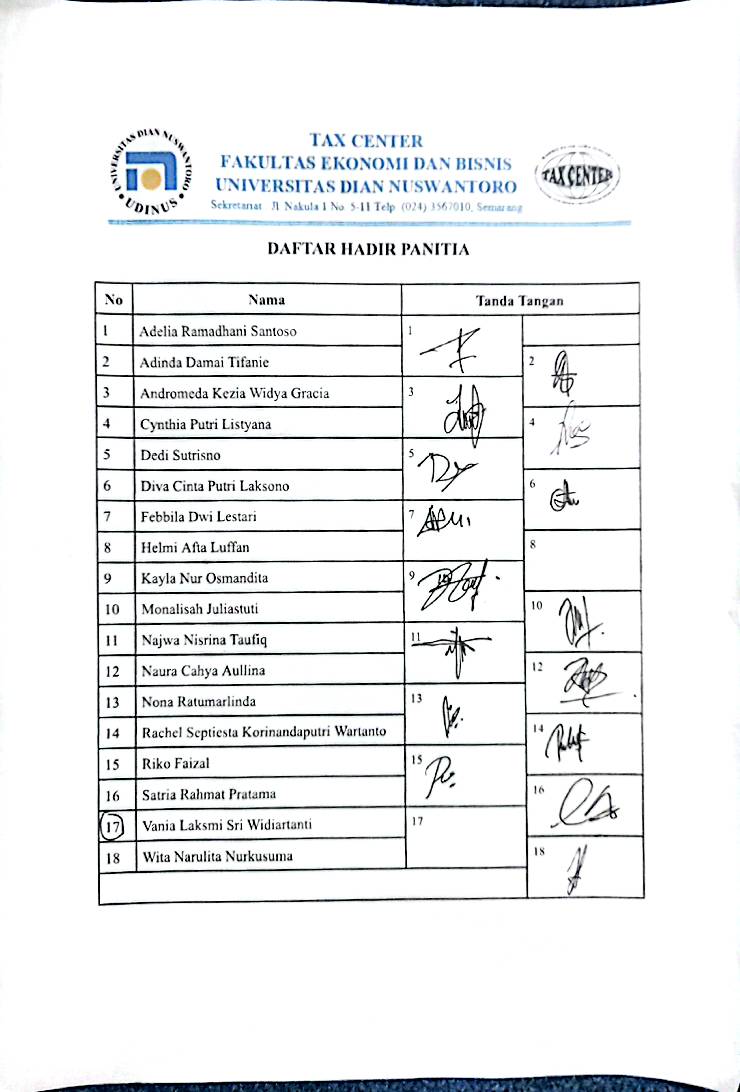 UNIVERSITAS DIAN NUSWANTORO
• UDINUS •
TAX CENTER
FAKULTAS EKONOMI DAN BISNIS
UNIVERSITAS DIAN NUSWANTORO
Sekretariat Jl. Nakula I No. 5-11 Telp. (024) 3567010, Semarang
TAX CENTER
DAFTAR HADIR PANITIA
No Nama Tanda Tangan
1 Adelia Ramadhani Santoso 1
2 Adinda Damai Tifanie 2
3 Andromeda Kezia Widya Gracia 3
4 Cynthia Putri Listyana 4
5 Dedi Sutrisno 5
6 Diva Cinta Putri Laksono 6
7 Febbila Dwi Lestari 7
8 Helmi Afta Luffan 8
9 Kayla Nur Osmandita 9
10 Monalisah Juliastuti 10
11 Najwa Nisrina Taufiq 11
12 Naura Cahya Aullina 12
13 Nona Ratumarlinda 13
14 Rachel Septiesta Korinandaputri Wartanto 14
15 Riko Faizal 15
16 Satria Rahmat Pratama 16
17 Vania Laksmi Sri Widiartanti 17
18 Wita Narulita Nurkusuma 18